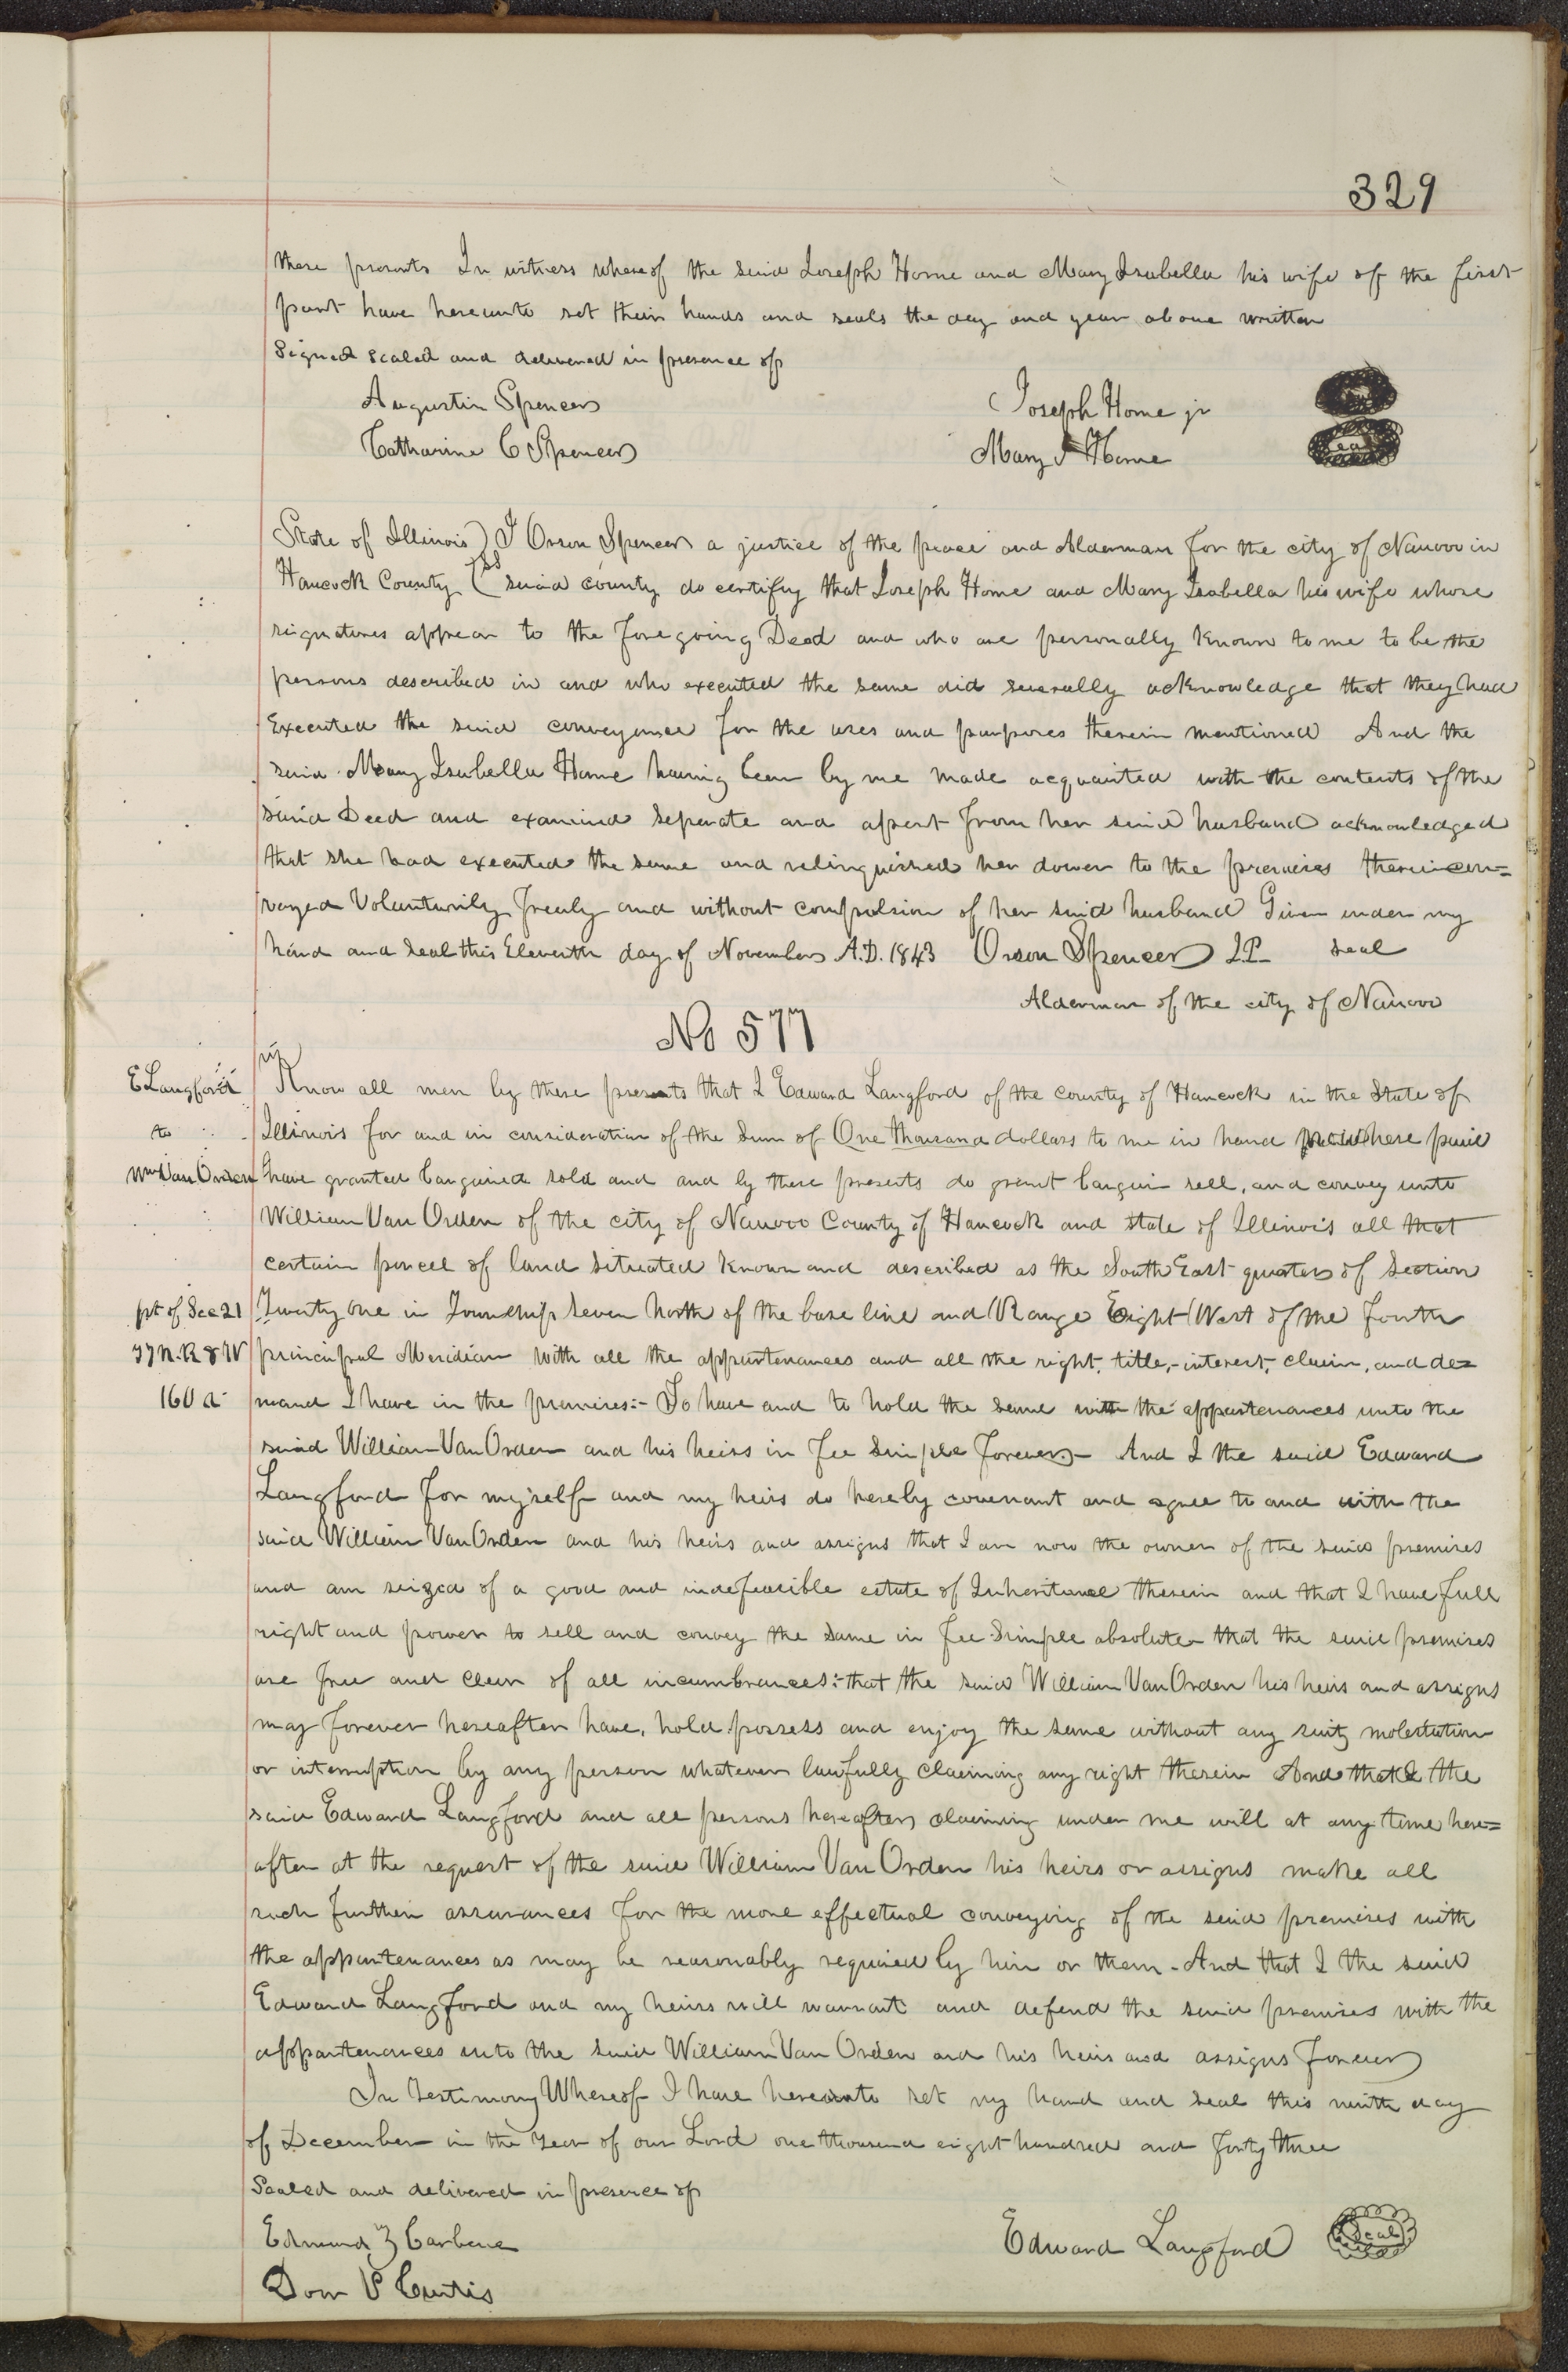 329
these presents In witness whereof the said Joseph Horne and Mary Isabella his wife of the first
part have hereunto set their hands and seals the day and year above written
Signed sealed and delivered in presence of
Augustin Spencer
Joseph Horne jr
Catharine C Spencer
Mary I Horne
seal
State of Illinois ) I Orson Spencer a justice of the peace and Alderman for the city of Nauvoo in
Hancock County ( ss said county do certify that Joseph Horne and Mary Isabella his wife whose
signatures appear to the foregoing Deed and who are personally known to me to be the
persons described in and who executed the same did severally acknowledge that they had
Executed the said conveyance for the uses and purposes therein mentioned And the
said Mary Isabella Horne having been by me made acquainted with the contents of the
said Deed and examined seperate and apart from her said husband acknowledged
that she had executed the same and relinquished her dower to the premises therein con=
veyed Voluntarily freely and without compulsion of her said husband Given under my
hand and seal this Eleventh day of November A.D. 1843 Orson Spencer J.P. seal
Alderman of the city of Nauvoo
No 577
E Langford
Know all men by these presents that I Edward Langford of the county of Hancock in the State of
to
Illinois for and in consideration of the Sum of One thousand dollars to me in hand here paid
Wm Van Orden
have granted bargained sold and and by these presents do grant bargain sell, and convey unto
William Van Orden of the city of Nauvoo County of Hancock and state of Illinois all that
certain parcel of land situated known and described as the South East quarter of Section
pt of Sec 21
Twenty one in Township Seven North of the base line and Range Eight West of the fourth
T7N. R8W
principal Meridian with all the appurtenances and all the right, title, interest, claim, and de=
160 a
mand I have in the premises:- To have and to hold the same with the appurtenances unto the
said William Van Orden and his heirs in fee simple forever.- And I the said Edward
Langford for myself and my heirs do hereby covenant and agree to and with the
said William Van Orden and his heirs and assigns that I am now the owner of the said premises
and am seized of a good and indefeasible estate of Inheritance therein and that I have full
right and power to sell and convey the same in fee simple absolute that the said premises
are free and clear of all incumbrances: that the said William Van Orden his heirs and assigns
may forever hereafter have, hold possess and enjoy the same without any suit, molestation
or interruption by any person whatever lawfully claiming any right therein And that I the
said Edward Langford and all persons hereafter claiming under me will at any time here=
after at the request of the said William Van Orden his heirs or assigns make all
such further assurances for the more effectual conveying of the said premises with
the appurtenances as may be reasonably required by him or them - And that I the said
Edward Langford and my heirs will warrant and defend the said premises with the
appurtenances unto the said William Van Orden and his heirs and assigns forever
In testimony Whereof I have hereunto set my hand and seal this ninth day
of December in the Year of our Lord one thousand eight hundred and forty three
Sealed and delivered in presence of
Edmund Z Carbene
Edward Langford
Seal
Dom P Curtis